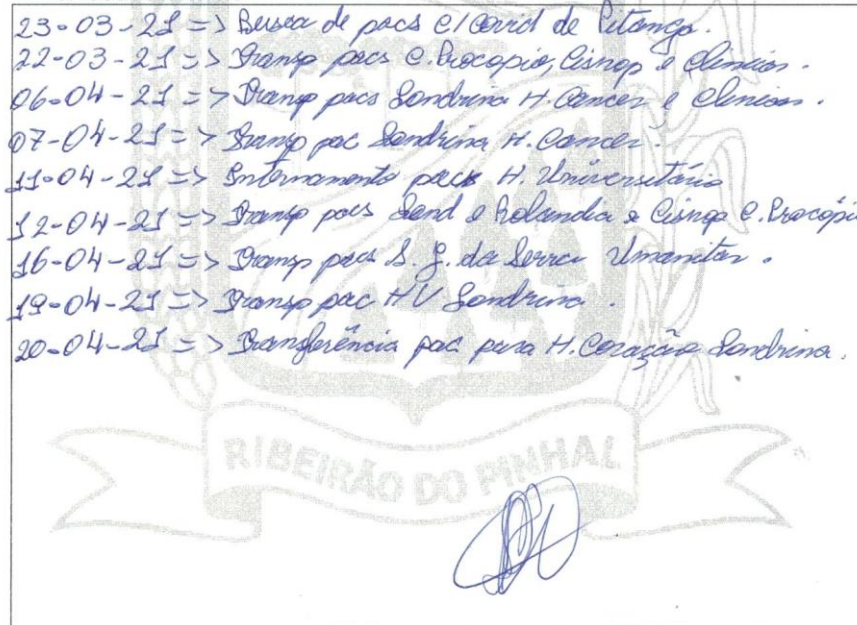 23-03-21 => Busca de pacs c/ Covid de Pitanga.
22-03-21 => Transp pacs C. Procopio, Cisnop e Clinicas.
06-04-21 => Transp pacs Londrina H. Cancer e Clinicas.
07-04-21 => Transp pac Londrina H. Cancer.
11-04-21 => Internamento pacs H. Universitário
12-04-21 => Transp pacs Lond e Rolandia e Cisnop C. Procópio
16-04-21 => Transp pacs S. J. da Serra Umanitar.
19-04-21 => Transp pac HU Londrina.
20-04-21 => Transferência pac para H. Coração Londrina.
RIBEIRÃO DO PINHAL